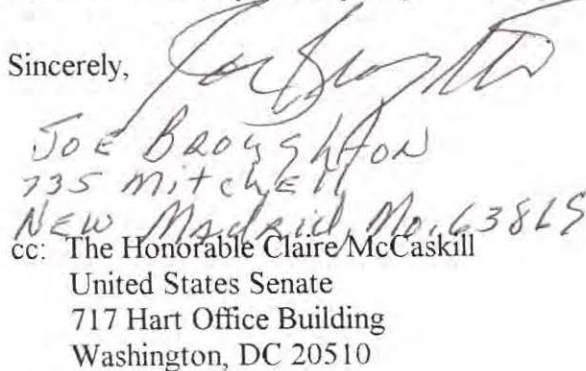 Sincerely,
JOE BROUGHTON
735 MITCHELL
NEW MADRID, MO. 63869
cc: The Honorable Claire McCaskill
United States Senate
717 Hart Office Building
Washington, DC 20510